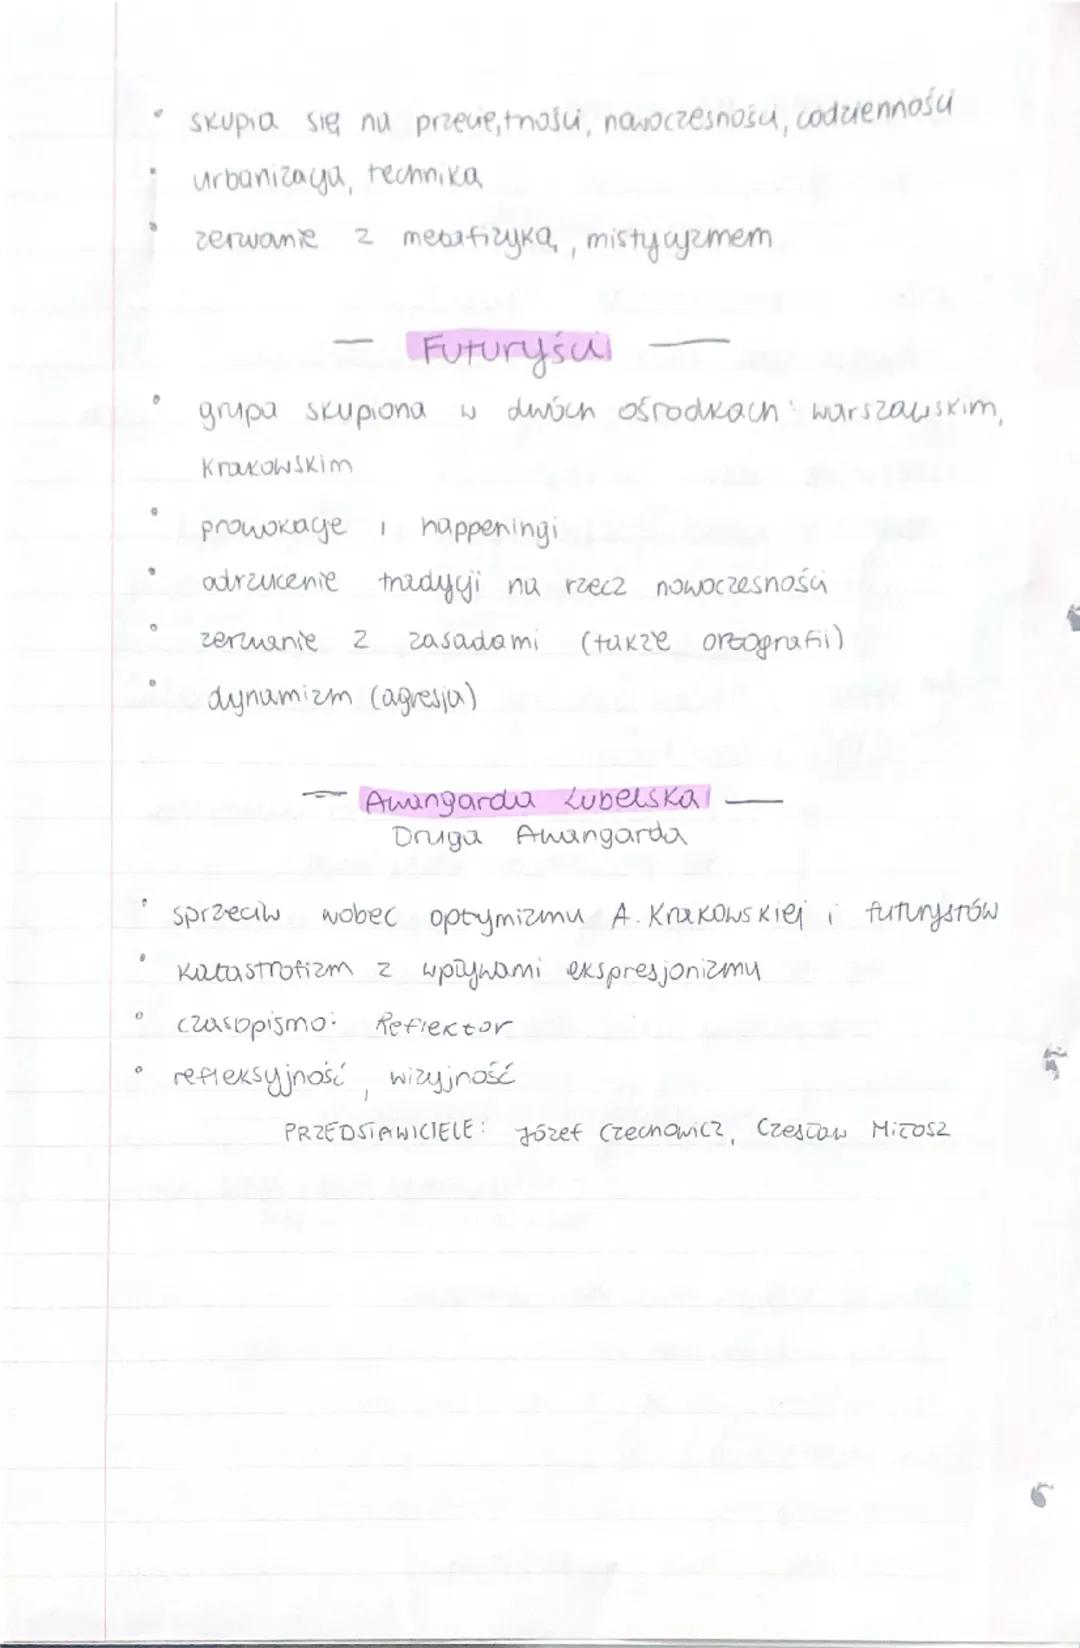 • skupia się na przeciętności, nowoczesności, codzienności
• urbanizacja, technika
• zerwanie z metafizyką, mistycyzmem
— Futuryści —
• grupa skupiona w dwóch ośrodkach: warszawskim,
krakowskim
• prowokacje i happeningi
• odrzucenie tradycji na rzecz nowoczesności
• zerwanie z zasadami (także ortografii)
• dynamizm (agresja)
— Awangarda Lubelska —
Druga Awangarda
• sprzeciw wobec optymizmu A. Krakowskiej i futurystów
• katastrofizm z wpływami ekspresjonizmu
• czasopismo: Reflektor
• refleksyjność, wizyjność
PRZEDSTAWICIELE: Józef Czechowicz, Czesław Miłosz